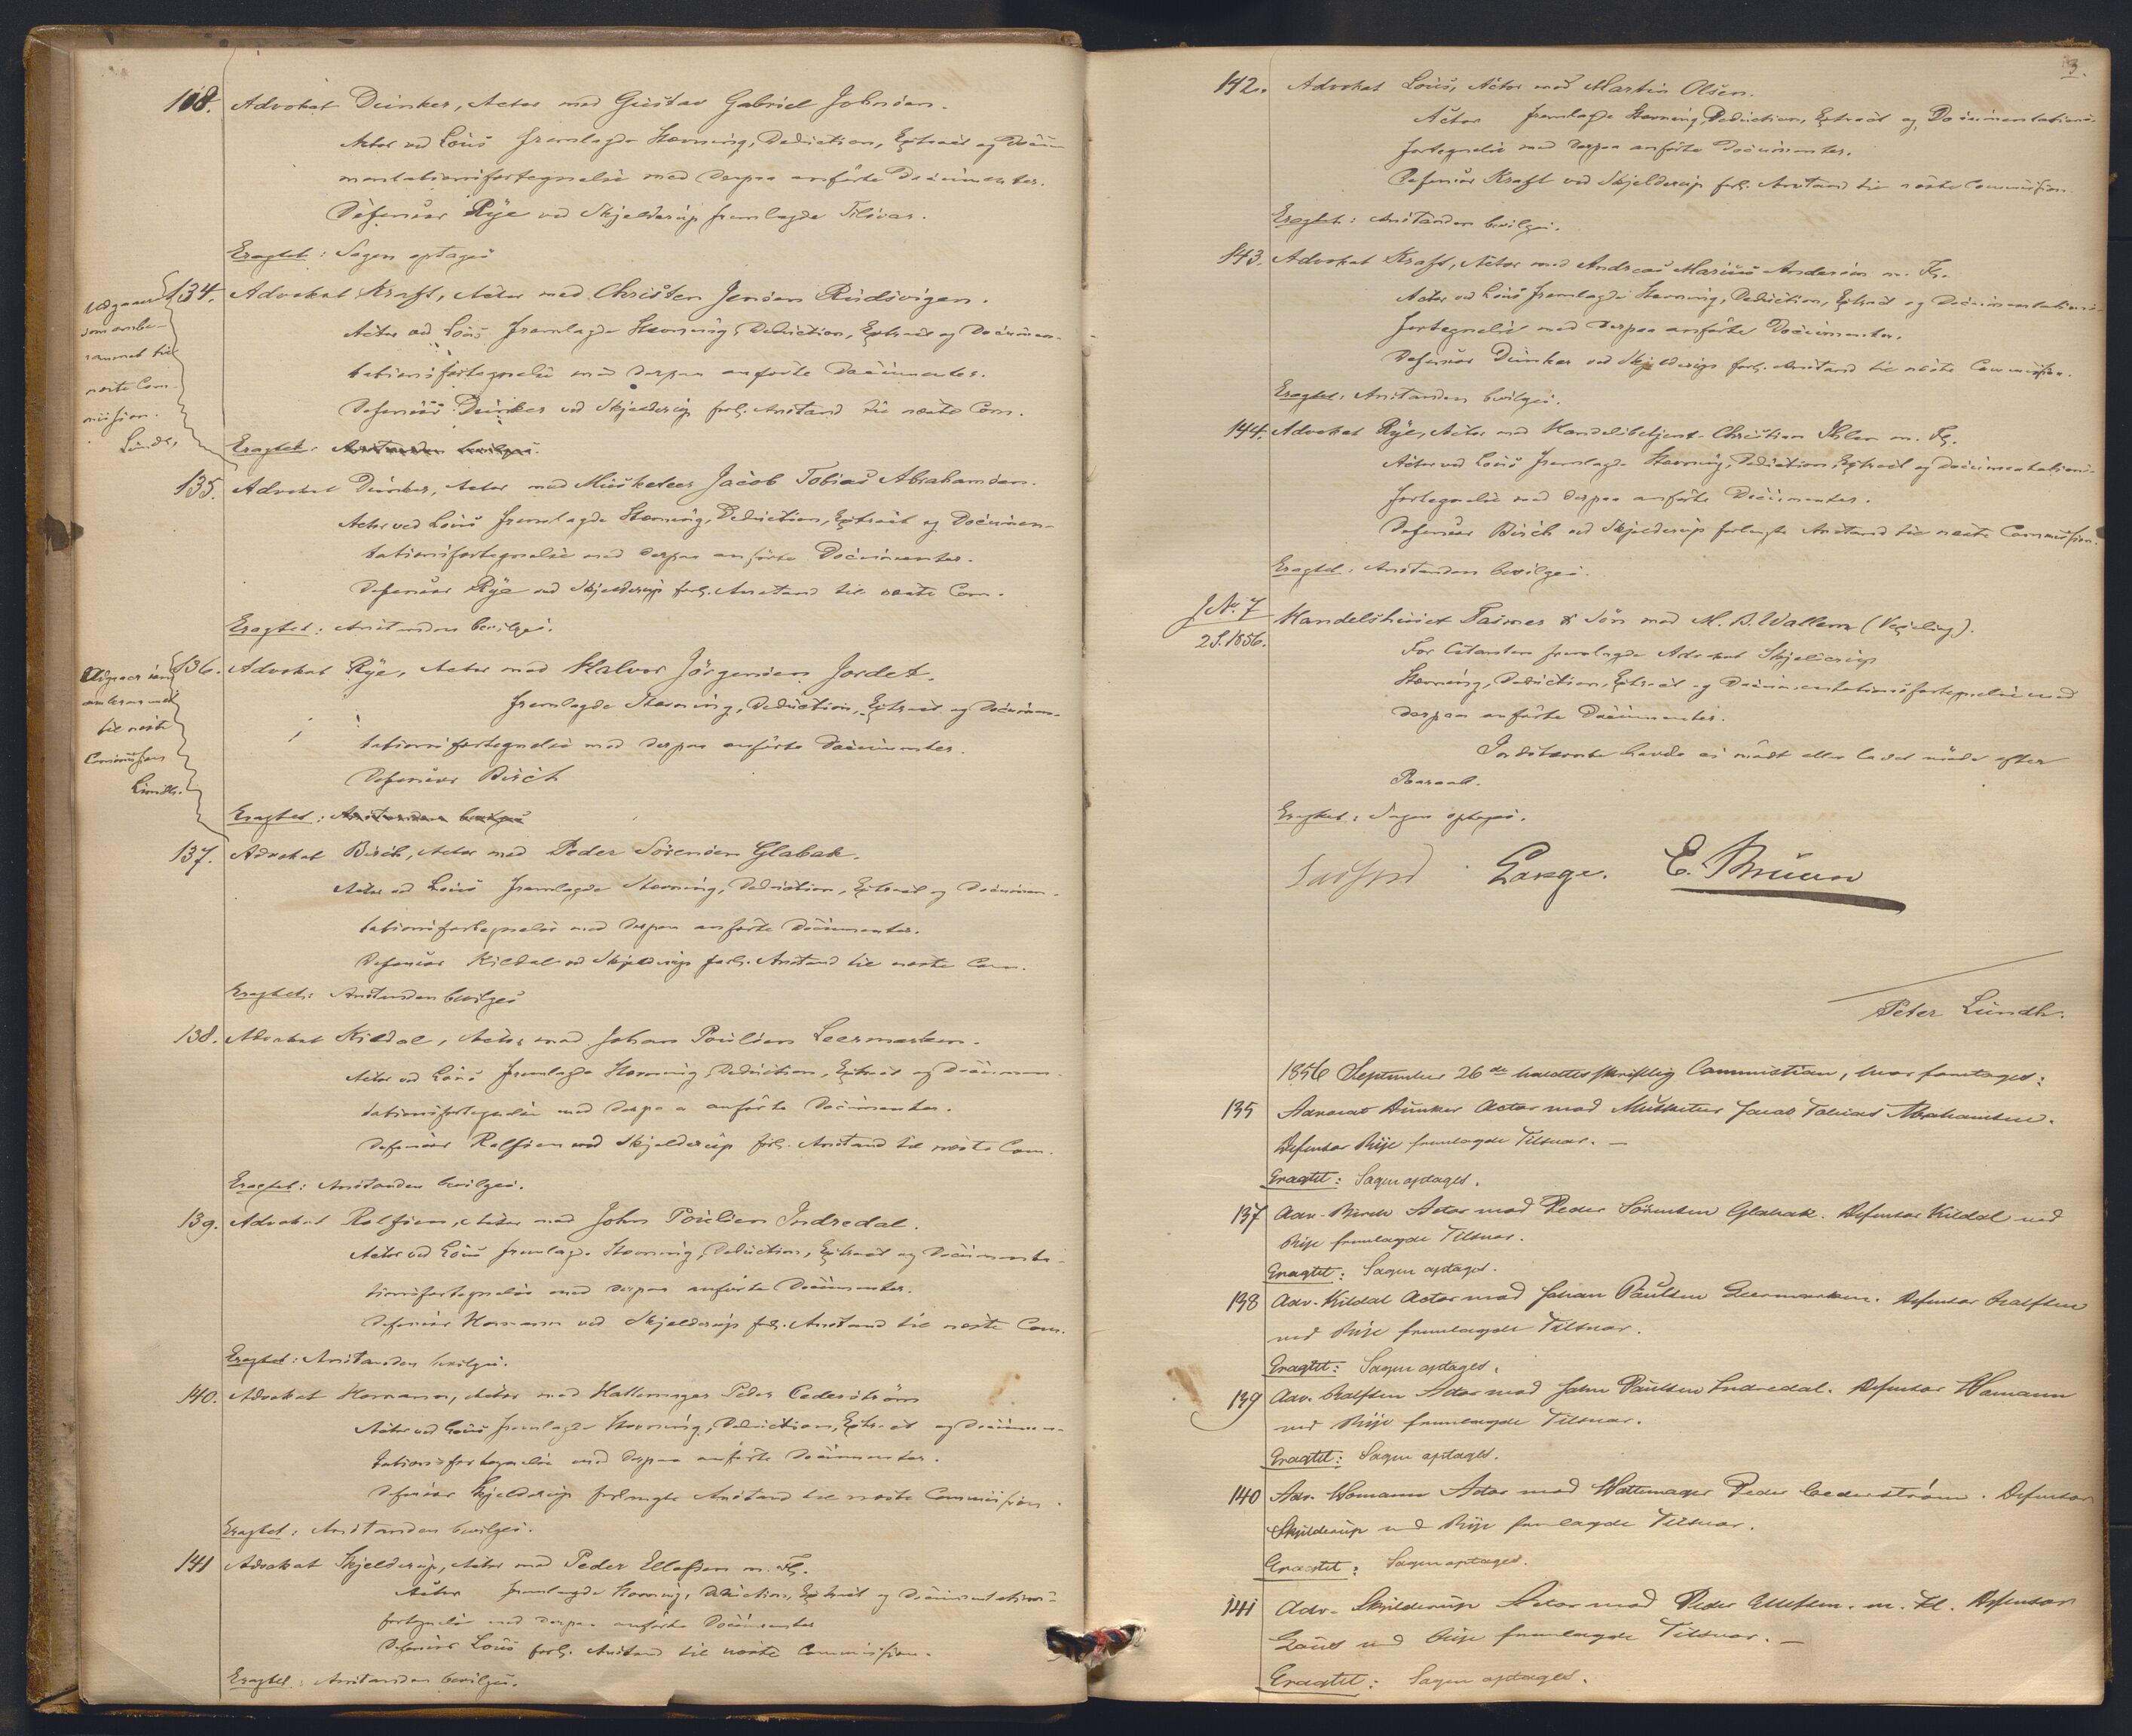 118. Advokat Dunker, Actor mod Gustav Gabriel Johnsen.
Actor ved Lous fremlagde Stevning, Deduction, Extract og Docu-
mentationsfortegnelse med derpaa anførte Documenter.
Defensor Rye ved Skjelderup fremlagde Tilsvar.
Eragtet: Sagen optages
134. Advokat Kraft, Actor mod Christen Jensen Rudsvigen.
Actor ved Lous fremlagde Stevning, Deduction, Extract og Documen-
tationsfortegnelse med derpaa anførte Documenter.
Defensor Dunker ved Skjelderup forl. Anstand til næste Com.
Eragtet: Anstanden bevilges.
udgaaer
som anbe-
rammet til
næste Com-
mission.
Lundh.
135. Advokat Dunker, Actor mod Musketeer Jacob Tobias Abrahamsen.
Actor ved Lous fremlagde Stevning, Deduction, Extract og Documen-
tationsfortegnelse med derpaa anførte Documenter.
Defensor Rye ved Skjelderup forl. Anstand til næste Com.
Eragtet: Anstanden bevilges.
136. Advokat Rye, Actor mod Halvor Jörgensen Jordet.
fremlagde Stevning, Deduction, Extract og Documen-
tationsfortegnelse med derpaa anførte Documenter.
Defensor Birch
Eragtet: Anstanden bevilges
Udgaaer som
anberammet
til næste
Commission
Lundh.
137. Advokat Birch, Actor mod Peder Sörensen Glabak.
Actor ved Lous fremlagde Stevning, Deduction, Extract og Documen-
tationsfortegnelse med derpaa anførte Documenter.
Defensor Kildal ved Skjelderup forl. Anstand til næste Com.
Eragtet: Anstanden bevilges
138. Advokat Kildal, Actor mod Johan Poulsen Leermarken.
Actor ved Lous fremlagde Stevning, Deduction, Extract og Documen-
tationsfortegnelse med derpaa anførte Documenter.
Defensor Rolfsen ved Skjelderup forl. Anstand til næste Com.
Eragtet: Anstanden bevilges.
139. Advokat Rolfsen, Actor mod John Poulsen Indredal.
Actor ved Lous fremlagde Stevning, Deduction, Extract og Documenta-
tionsfortegnelse med derpaa anførte Documenter.
Defensor Homann ved Skjelderup forl. Anstand til næste Com.
Eragtet: Anstanden bevilges.
140. Advokat Homann, Actor mod Hattemager Peder Cederström
Actor ved Lous fremlagde Stevning, Deduction, Extract og Documen-
tationsfortegnelse med derpaa anførte Documenter.
Defensor Skjelderup forlangte Anstand til næste Commission.
Eragtet: Anstanden bevilges.
141 Advokat Skjelderup, Actor mod Peder Ellefsen m. Fl.
Actor fremlagde Stevning, Deduction, Extract og Documentations-
fortegnelse med derpaa anførte Documenter
Defensor Lous forl. Anstand til næste Commission.
Eragtet: Anstanden bevilges.
3.
142. Advokat Lous, Actor mod Martin Olsen.
Actor fremlagde Stevning, Deduction, Extract og Documentations-
fortegnelse med derpaa anførte Documenter.
Defensor Kraft ved Skjelderup forl. Anstand til næste Commission.
Eragtet: Anstanden bevilges.
143. Advokat Kraft, Actor mod Andreas Marius Andersen m. Fl.
Actor ved Lous fremlagde Stevning, Deduction, Extract og Documentations-
fortegnelse med derpaa anførte Documenter.
Defensor Dunker ved Skjelderup forl. Anstand til næste Commission.
Eragtet: Anstanden bevilges.
144. Advokat Rye, Actor mod Handelsbetjent Christian Ihlen m. Fl.
Actor ved Lous fremlagde Stevning, Deduction, Extract og Documentations-
fortegnelse med derpaa anførte Documenter.
Defensor Birch ved Skjelderup forlangte Anstand til næste Commission.
Eragtet: Anstanden bevilges.
L. No. 7
2 S. 1856. Handelshuset & Sön mod M. D. Wallem (Vexelsag).
For Citanten fremlagde Advokat Skjelderup
Stevning, Deduction, Extract og Documentationsfortegnelse med
derpaa anførte Documenter.
Indstevnte havde ei mødt eller ladet møde efter
Paaraab.
Eragtet: Sagen optages.
Lange. E. Bruun
Peter Lundh.
1856 September 26de holdtes skriftlig Commission, hvor foretoges:
135 Advocat Dunker Actor mod Musketeer Jacob Tobias Abrahamsen.
Defensor Rye fremlagde Tilsvar. —
Eragtet: Sagen optages.
137 Adv. Birch Actor mod Peder Sörensen Glabak. Defensor Kildal ved
Rye fremlagde Tilsvar.
Eragtet: Sagen optages.
138 Adv. Kildal Actor mod Johan Paulsen Leermarken. Defensor Rolfsen
ved Rye fremlagde Tilsvar.
Eragtet: Sagen optages.
139 Adv. Rolfsen Actor mod John Paulsen Indredal. Defensor Homann
ved Rye fremlagde Tilsvar.
Eragtet: Sagen optages.
140 Adv. Homann Actor mod Hattemager Peder Cederström. Defensor
Skjelderup ved Rye fremlagde Tilsvar.
Eragtet: Sagen optages.
141 Adv. Skjelderup Actor mod Peder Ellefsen m. Fl. Defensor
Lous ved Rye fremlagde Tilsvar. —
Eragtet: Sagen optages.